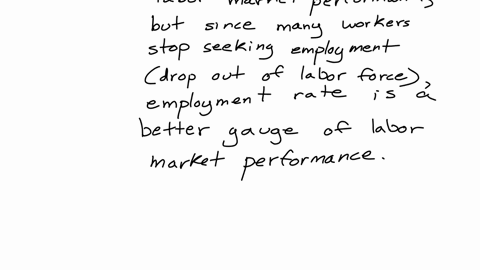 labor market performance
but since many workers
stop seeking employment
(drop out of labor force),
employment rate is a
better gauge of labor
market performance.